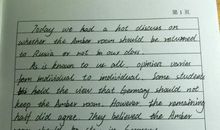 第1页
Today, we had a hot discuss on
whether the Amber room should be returned
to Rusia or not in our class.
As is known to us all, opinion varies
form individual to individual. Some students
hold the view that Germany should not
keep the Amber room. However, the remaining
half did agree. They believed the Amber